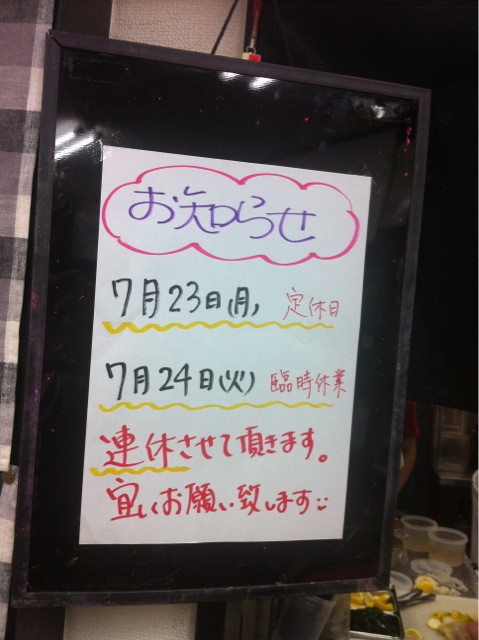 お知らせ
7月23日(月) 定休日
7月24日(火) 臨時休業
連休させて頂きます。
宜しくお願い致します